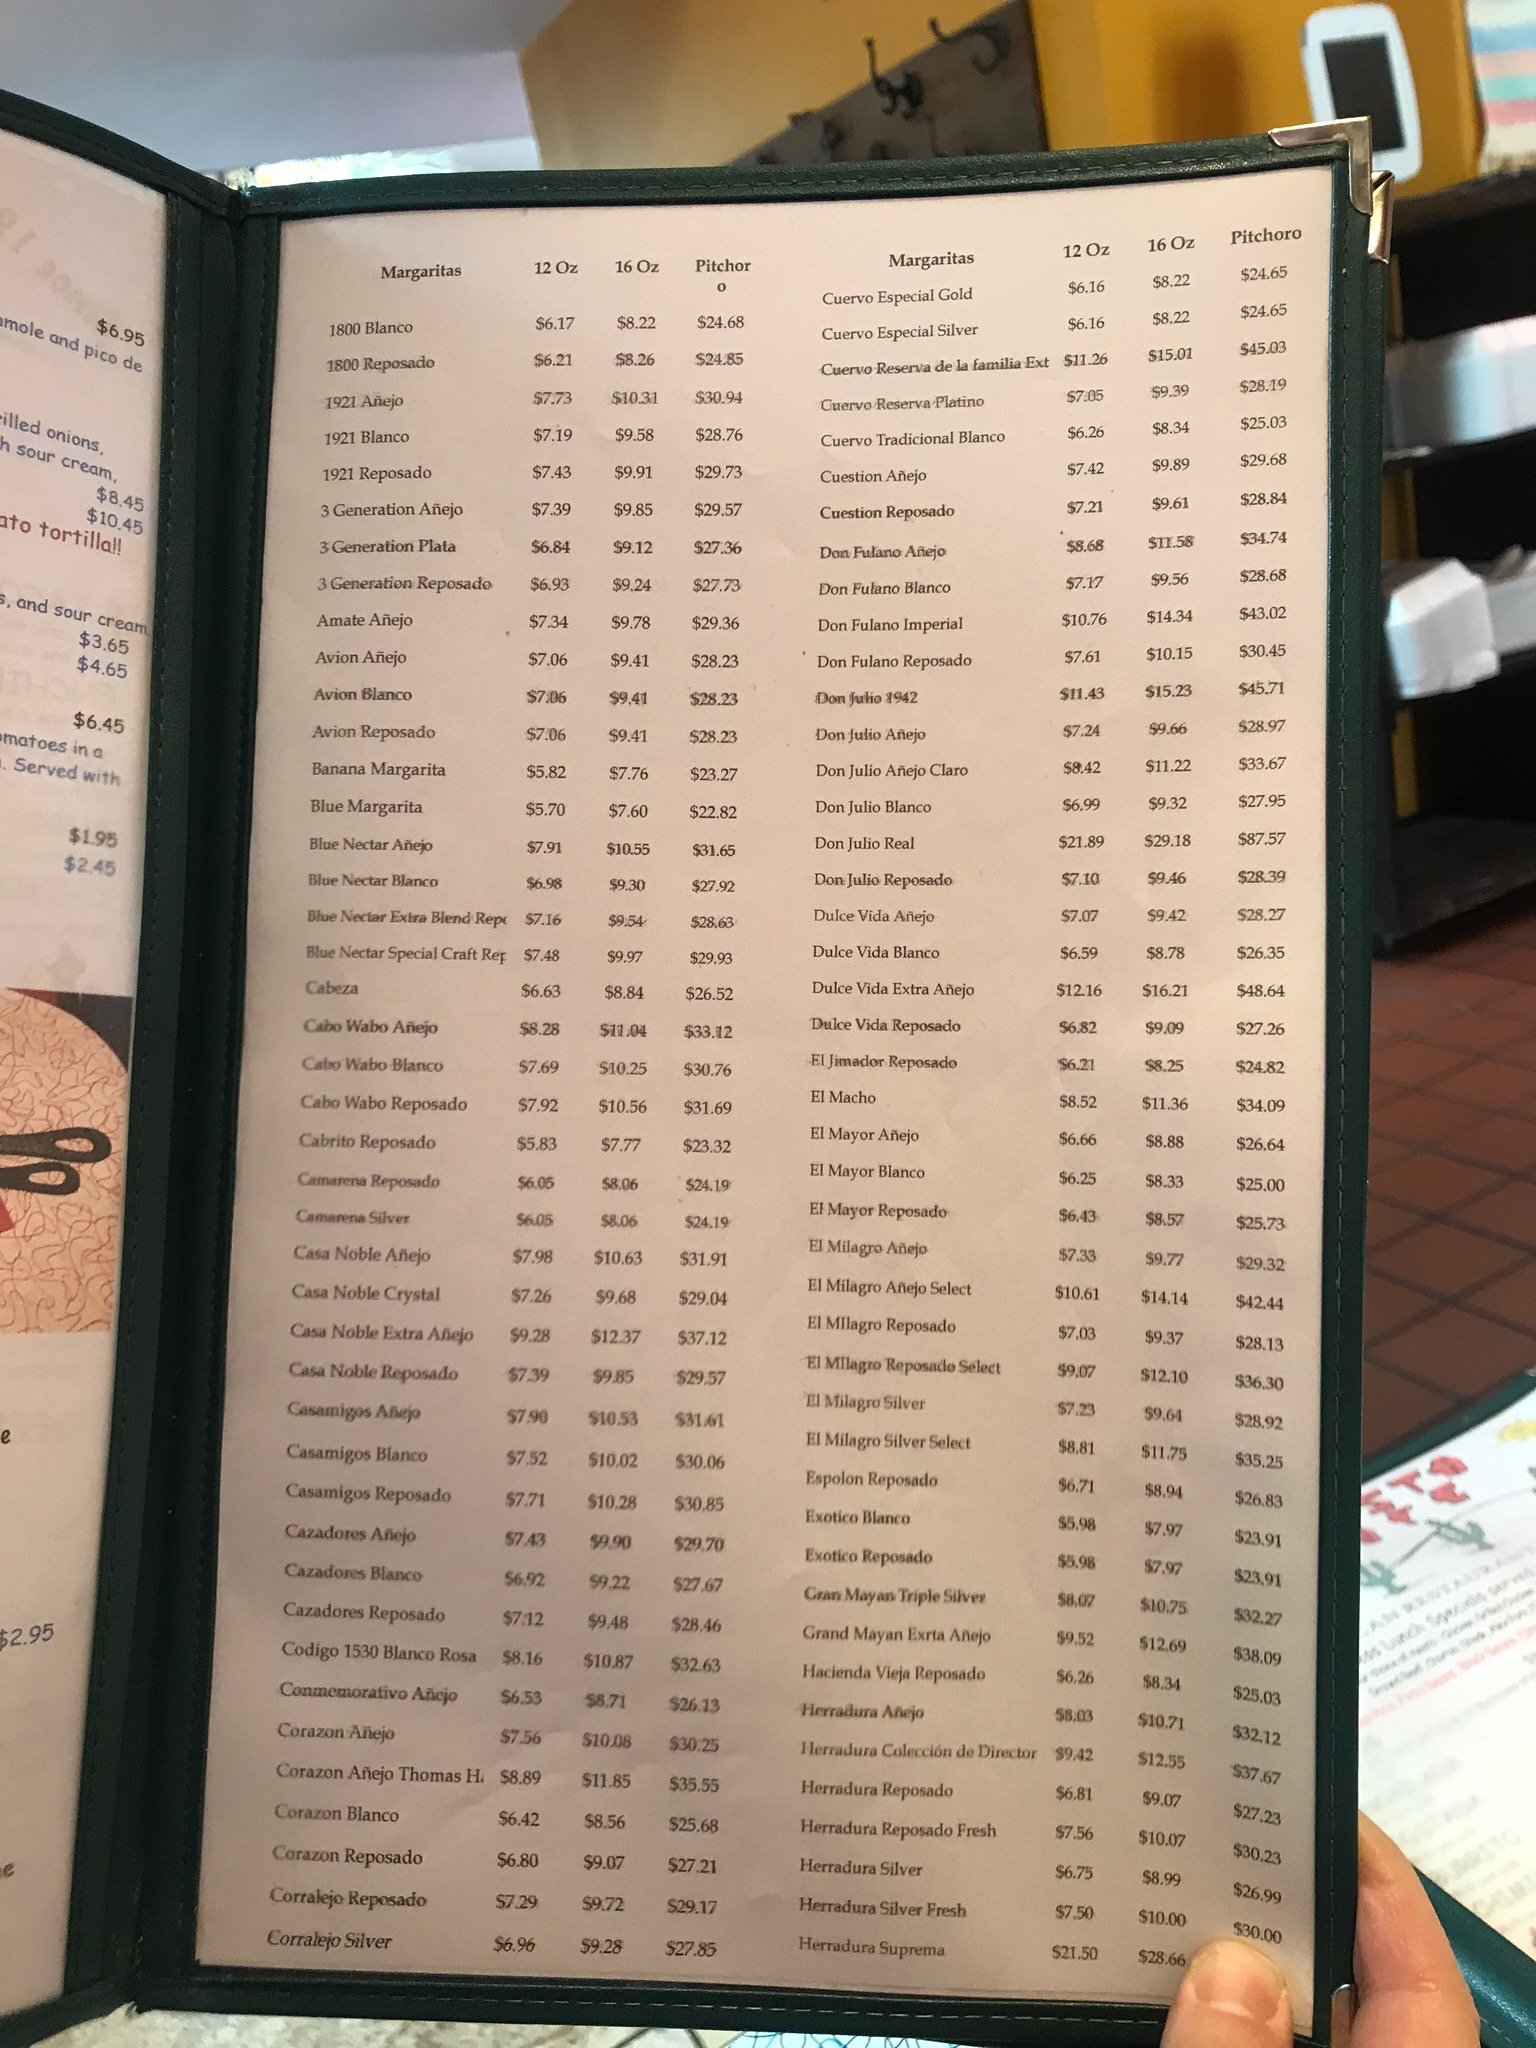 $6.95
mole and pico de
illed onions,
h sour cream,
$8.45
$10.45
ato tortilla!!
s, and sour cream
$3.65
$4.65
$6.45
omatoes in a
. Served with
$1.95
$2.45
e
$2.95
Margaritas 12 Oz 16 Oz Pitchor
o
1800 Blanco $6.17 $8.22 $24.68
1800 Reposado $6.21 $8.26 $24.85
1921 Añejo $7.73 $10.31 $30.94
1921 Blanco $7.19 $9.58 $28.76
1921 Reposado $7.43 $9.91 $29.73
3 Generation Añejo $7.39 $9.85 $29.57
3 Generation Plata $6.84 $9.12 $27.36
3 Generation Reposado $6.93 $9.24 $27.73
Amate Añejo $7.34 $9.78 $29.36
Avion Añejo $7.06 $9.41 $28.23
Avion Blanco $7.06 $9.41 $28.23
Avion Reposado $7.06 $9.41 $28.23
Banana Margarita $5.82 $7.76 $23.27
Blue Margarita $5.70 $7.60 $22.82
Blue Nectar Añejo $7.91 $10.55 $31.65
Blue Nectar Blanco $6.98 $9.30 $27.92
Blue Nectar Extra Blend Repo $7.16 $9.54 $28.63
Blue Nectar Special Craft Rep $7.48 $9.97 $29.93
Cabeza $6.63 $8.84 $26.52
Cabo Wabo Añejo $8.28 $11.04 $33.12
Cabo Wabo Blanco $7.69 $10.25 $30.76
Cabo Wabo Reposado $7.92 $10.56 $31.69
Cabrito Reposado $5.83 $7.77 $23.32
Camarena Reposado $6.05 $8.06 $24.19
Camarena Silver $6.05 $8.06 $24.19
Casa Noble Añejo $7.98 $10.63 $31.91
Casa Noble Crystal $7.26 $9.68 $29.04
Casa Noble Extra Añejo $9.28 $12.37 $37.12
Casa Noble Reposado $7.39 $9.85 $29.57
Casamigos Añejo $7.90 $10.53 $31.61
Casamigos Blanco $7.52 $10.02 $30.06
Casamigos Reposado $7.71 $10.28 $30.85
Cazadores Añejo $7.43 $9.90 $29.70
Cazadores Blanco $6.92 $9.22 $27.67
Cazadores Reposado $7.12 $9.48 $28.46
Codigo 1530 Blanco Rosa $8.16 $10.87 $32.63
Conmemorativo Añejo $6.53 $8.71 $26.13
Corazon Añejo $7.56 $10.08 $30.25
Corazon Añejo Thomas H. $8.89 $11.85 $35.55
Corazon Blanco $6.42 $8.56 $25.68
Corazon Reposado $6.80 $9.07 $27.21
Corralejo Reposado $7.29 $9.72 $29.17
Corralejo Silver $6.96 $9.28 $27.85
Margaritas 12 Oz 16 Oz Pitchoro
Cuervo Especial Gold $6.16 $8.22 $24.65
Cuervo Especial Silver $6.16 $8.22 $24.65
Cuervo Reserva de la familia Ext $11.26 $15.01 $45.03
Cuervo Reserva Platino $7.05 $9.39 $28.19
Cuervo Tradicional Blanco $6.26 $8.34 $25.03
Cuestion Añejo $7.42 $9.89 $29.68
Cuestion Reposado $7.21 $9.61 $28.84
Don Fulano Añejo $8.68 $11.58 $34.74
Don Fulano Blanco $7.17 $9.56 $28.68
Don Fulano Imperial $10.76 $14.34 $43.02
Don Fulano Reposado $7.61 $10.15 $30.45
Don Julio 1942 $11.43 $15.23 $45.71
Don Julio Añejo $7.24 $9.66 $28.97
Don Julio Añejo Claro $8.42 $11.22 $33.67
Don Julio Blanco $6.99 $9.32 $27.95
Don Julio Real $21.89 $29.18 $87.57
Don Julio Reposado $7.10 $9.46 $28.39
Dulce Vida Añejo $7.07 $9.42 $28.27
Dulce Vida Blanco $6.59 $8.78 $26.35
Dulce Vida Extra Añejo $12.16 $16.21 $48.64
Dulce Vida Reposado $6.82 $9.09 $27.26
El Jimador Reposado $6.21 $8.25 $24.82
El Macho $8.52 $11.36 $34.09
El Mayor Añejo $6.66 $8.88 $26.64
El Mayor Blanco $6.25 $8.33 $25.00
El Mayor Reposado $6.43 $8.57 $25.73
El Milagro Añejo $7.33 $9.77 $29.32
El Milagro Añejo Select $10.61 $14.14 $42.44
El MIlagro Reposado $7.03 $9.37 $28.13
El MIlagro Reposado Select $9.07 $12.10 $36.30
El Milagro Silver $7.23 $9.64 $28.92
El Milagro Silver Select $8.81 $11.75 $35.25
Espolon Reposado $6.71 $8.94 $26.83
Exotico Blanco $5.98 $7.97 $23.91
Exotico Reposado $5.98 $7.97 $23.91
Gran Mayan Triple Silver $8.07 $10.75 $32.27
Grand Mayan Exrta Añejo $9.52 $12.69 $38.09
Hacienda Vieja Reposado $6.26 $8.34 $25.03
Herradura Añejo $8.03 $10.71 $32.12
Herradura Colección de Director $9.42 $12.55 $37.67
Herradura Reposado $6.81 $9.07 $27.23
Herradura Reposado Fresh $7.56 $10.07 $30.23
Herradura Silver $6.75 $8.99 $26.99
Herradura Silver Fresh $7.50 $10.00 $30.00
Herradura Suprema $21.50 $28.66